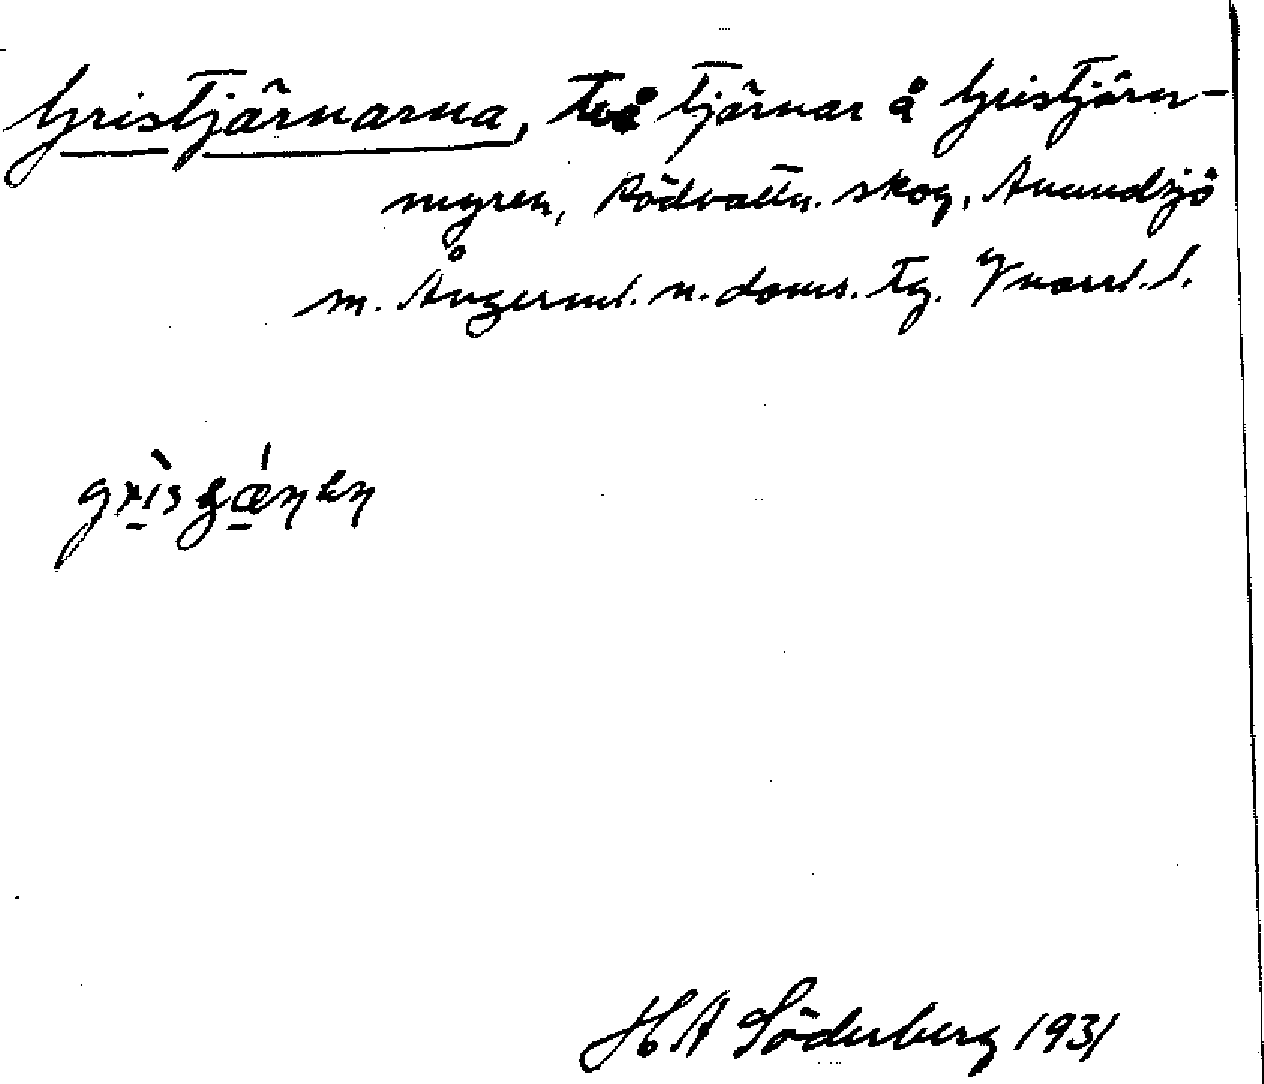 Gristjärnarna, två tjärnar å Gristjärn-
myren, Rödvattn. skog, Anundsjö
m. Ångerml. n. doms. tg. Vnorrl. l.
H A Söderberg 1931